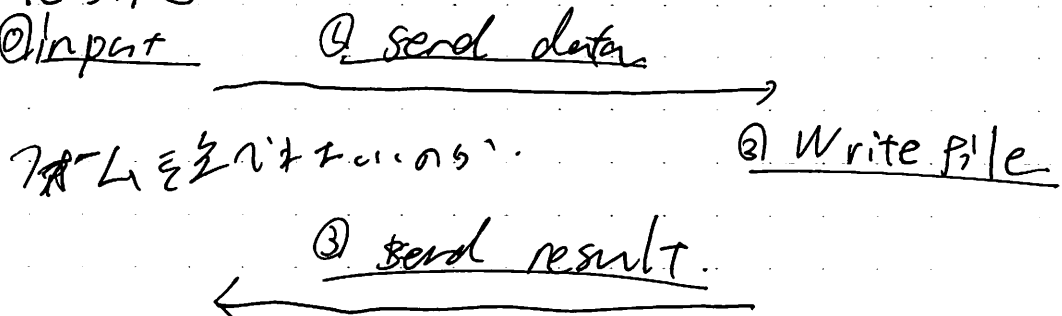 ⓪input ① send data
フォームを
② Write file
③ send result.